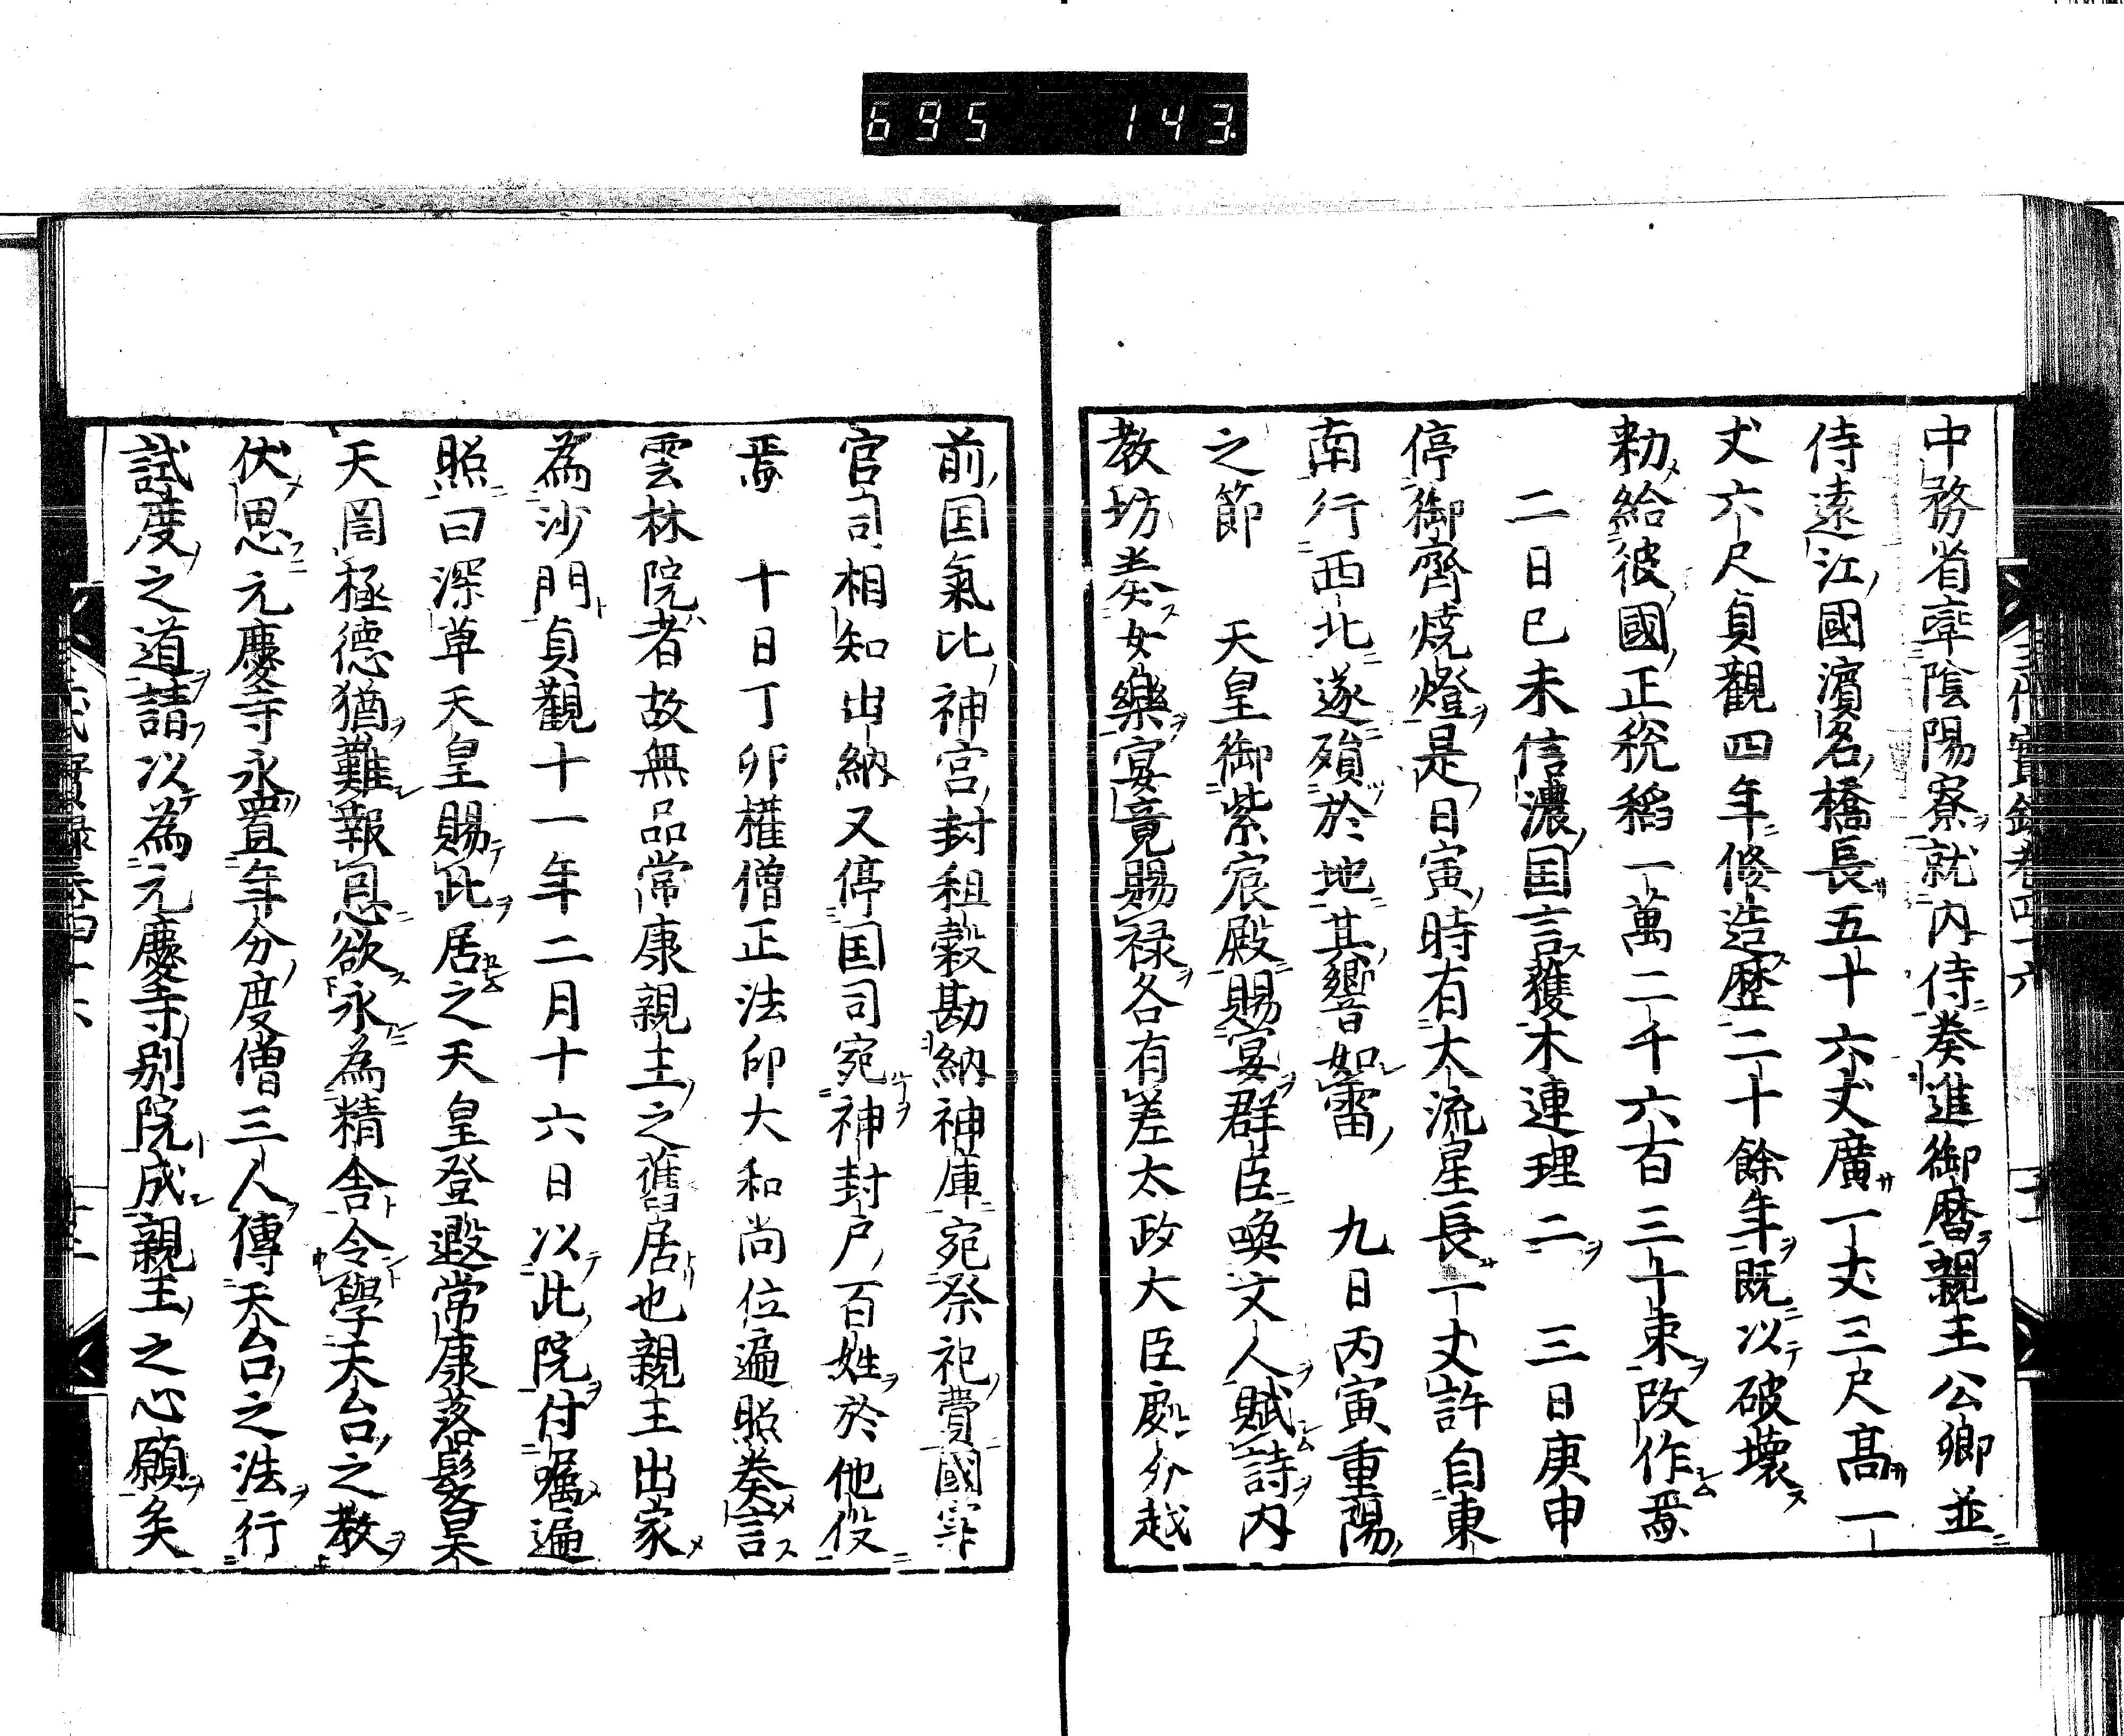 695 143
中務省率陰陽寮就内侍奏進御暦親王公卿並
侍遠江國濱名橋長五十六丈廣一丈三尺高一
丈六尺貞觀四年修造歴二十餘年既以破壞
勅給彼國正税稻一萬二千六百三十束改作焉
二日己未信濃国言獲木連理二　三日庚申
停御齊燒燈是日寅時有大流星長一丈許自東
南行西北遂殞於地其響如雷　九日丙寅重陽
之節　天皇御紫宸殿賜宴群臣喚文人賦詩内
教坊奏女樂宴竟賜禄各有差太政大臣處分越
前国氣比神宮封租穀勘納神庫宛祭祀費國宰
官司相知出納又停国司宛神封戸百姓於他役
焉　十日丁卯權僧正法印大和尚位遍照奏言
雲林院者故無品常康親王之舊居也親王出家
為沙門貞觀十一年二月十六日以此院付囑遍
照曰深草天皇賜此居之天皇登遐常康落髮昊
天罔極德猶難報恩欲永為精舎令學天台之教
伏思元慶寺永置年分度僧三人傳天台之法行
試度之道請以為元慶寺別院成親王之心願矣